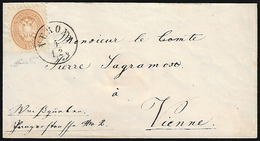 VERONA
Monsieur le Comte
Pierre Sagramoso
à
Vienne.
No 2.